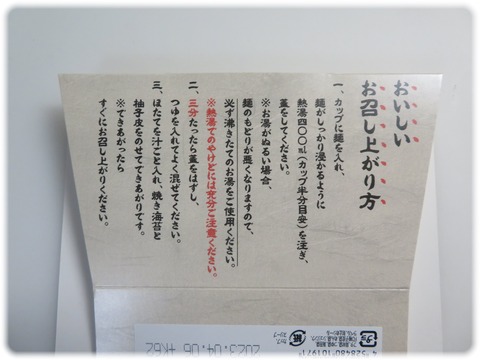 おいしい
お召し上がり方
一、カップに麺を入れ、
麺がしっかり浸かるように
熱湯四〇〇㎖(カップ半分目安)を注ぎ、
蓋をしてください。
※お湯がぬるい場合、
麺のもどりが悪くなりますので、
必ず沸きたてのお湯をご使用ください。
※熱湯でのやけどには充分ご注意ください。
二、三分たったら蓋をはずし、
つゆを入れてよく混ぜてください。
三、ほたてを汁ごと入れ、焼き海苔と
柚子皮をのせてできあがりです。
※できあがったら
すぐにお召し上がりください。
プラ
紙
2023.04.06